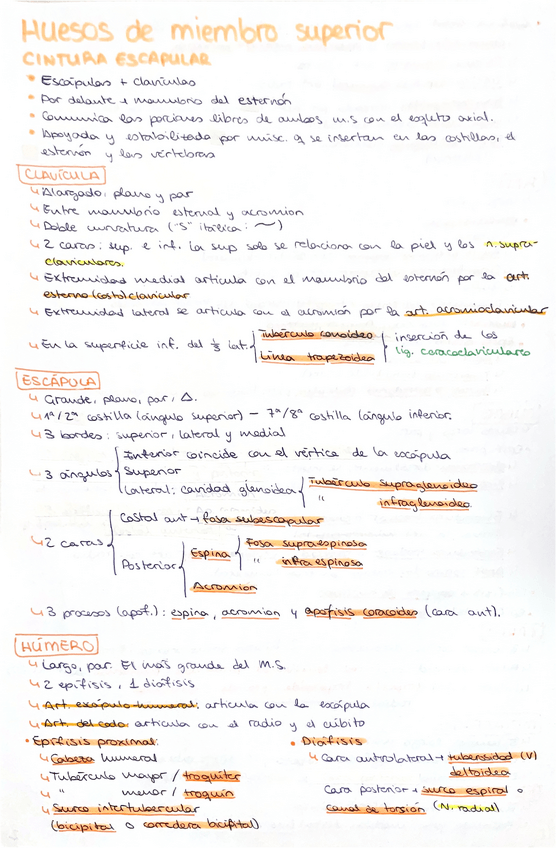 Huesos de miembro superior
CINTURA ESCAPULAR
• Escápulas + clavículas
• Por delante + manubrio del esternón
• Comunica las porciones libres de ambos m.s con el esqlto axial.
• Apoyada y estabilizada por músc. q se insertan en las costillas, el
esternón y las vértebras
CLAVÍCULA
↳ Alargado, plano y par
↳ Entre manubrio esternal y acromion
↳ Doble curvatura ("S" itálica: ~)
↳ 2 caras: sup. e inf. La sup solo se relaciona con la piel y los n. supra-
claviculares.
↳ Extremidad medial articula con el manubrio del esternón por la art.
esterno(costo)clavicular
↳ Extremidad lateral se articula con el acromión por la art. acromioclavicular
↳ En la superficie inf. del 1/3 lat. { Tubérculo conoideo / Línea trapezoidea } inserción de los lig. coracoclaviculares
ESCÁPULA
↳ Grande, plano, par, Δ.
↳ 1ª/2ª costilla (ángulo superior) – 7ª/8ª costilla (ángulo inferior.
↳ 3 bordes: superior, lateral y medial
↳ 3 ángulos { Inferior coincide con el vértice de la escápula
Superior
Lateral: cavidad glenoidea { Tubérculo supraglenoideo
" infraglenoideo
↳ 2 caras { Costal ant → fosa subescapular
Posterior { Espina { Fosa supraespinosa
" infraespinosa
Acromion
↳ 3 procesos (apóf.): espina, acromion y apófisis coracoides (cara ant).
HÚMERO
↳ Largo, par. El más grande del M.S.
↳ 2 epífisis, 1 diáfisis
↳ Art. escápulo-humeral: articula con la escápula
↳ Art. del codo: articula con el radio y el cúbito
• Epífisis proximal:
↳ Cabeza humeral
↳ Tubérculo mayor / troquiter
↳ " menor / troquín
↳ Surco intertubercular
(bicipital o corredera bicipital)
• Diáfisis
↳ Cara anterolateral → tuberosidad (V)
deltoidea
Cara posterior → surco espiral o
canal de torsión (N. radial)